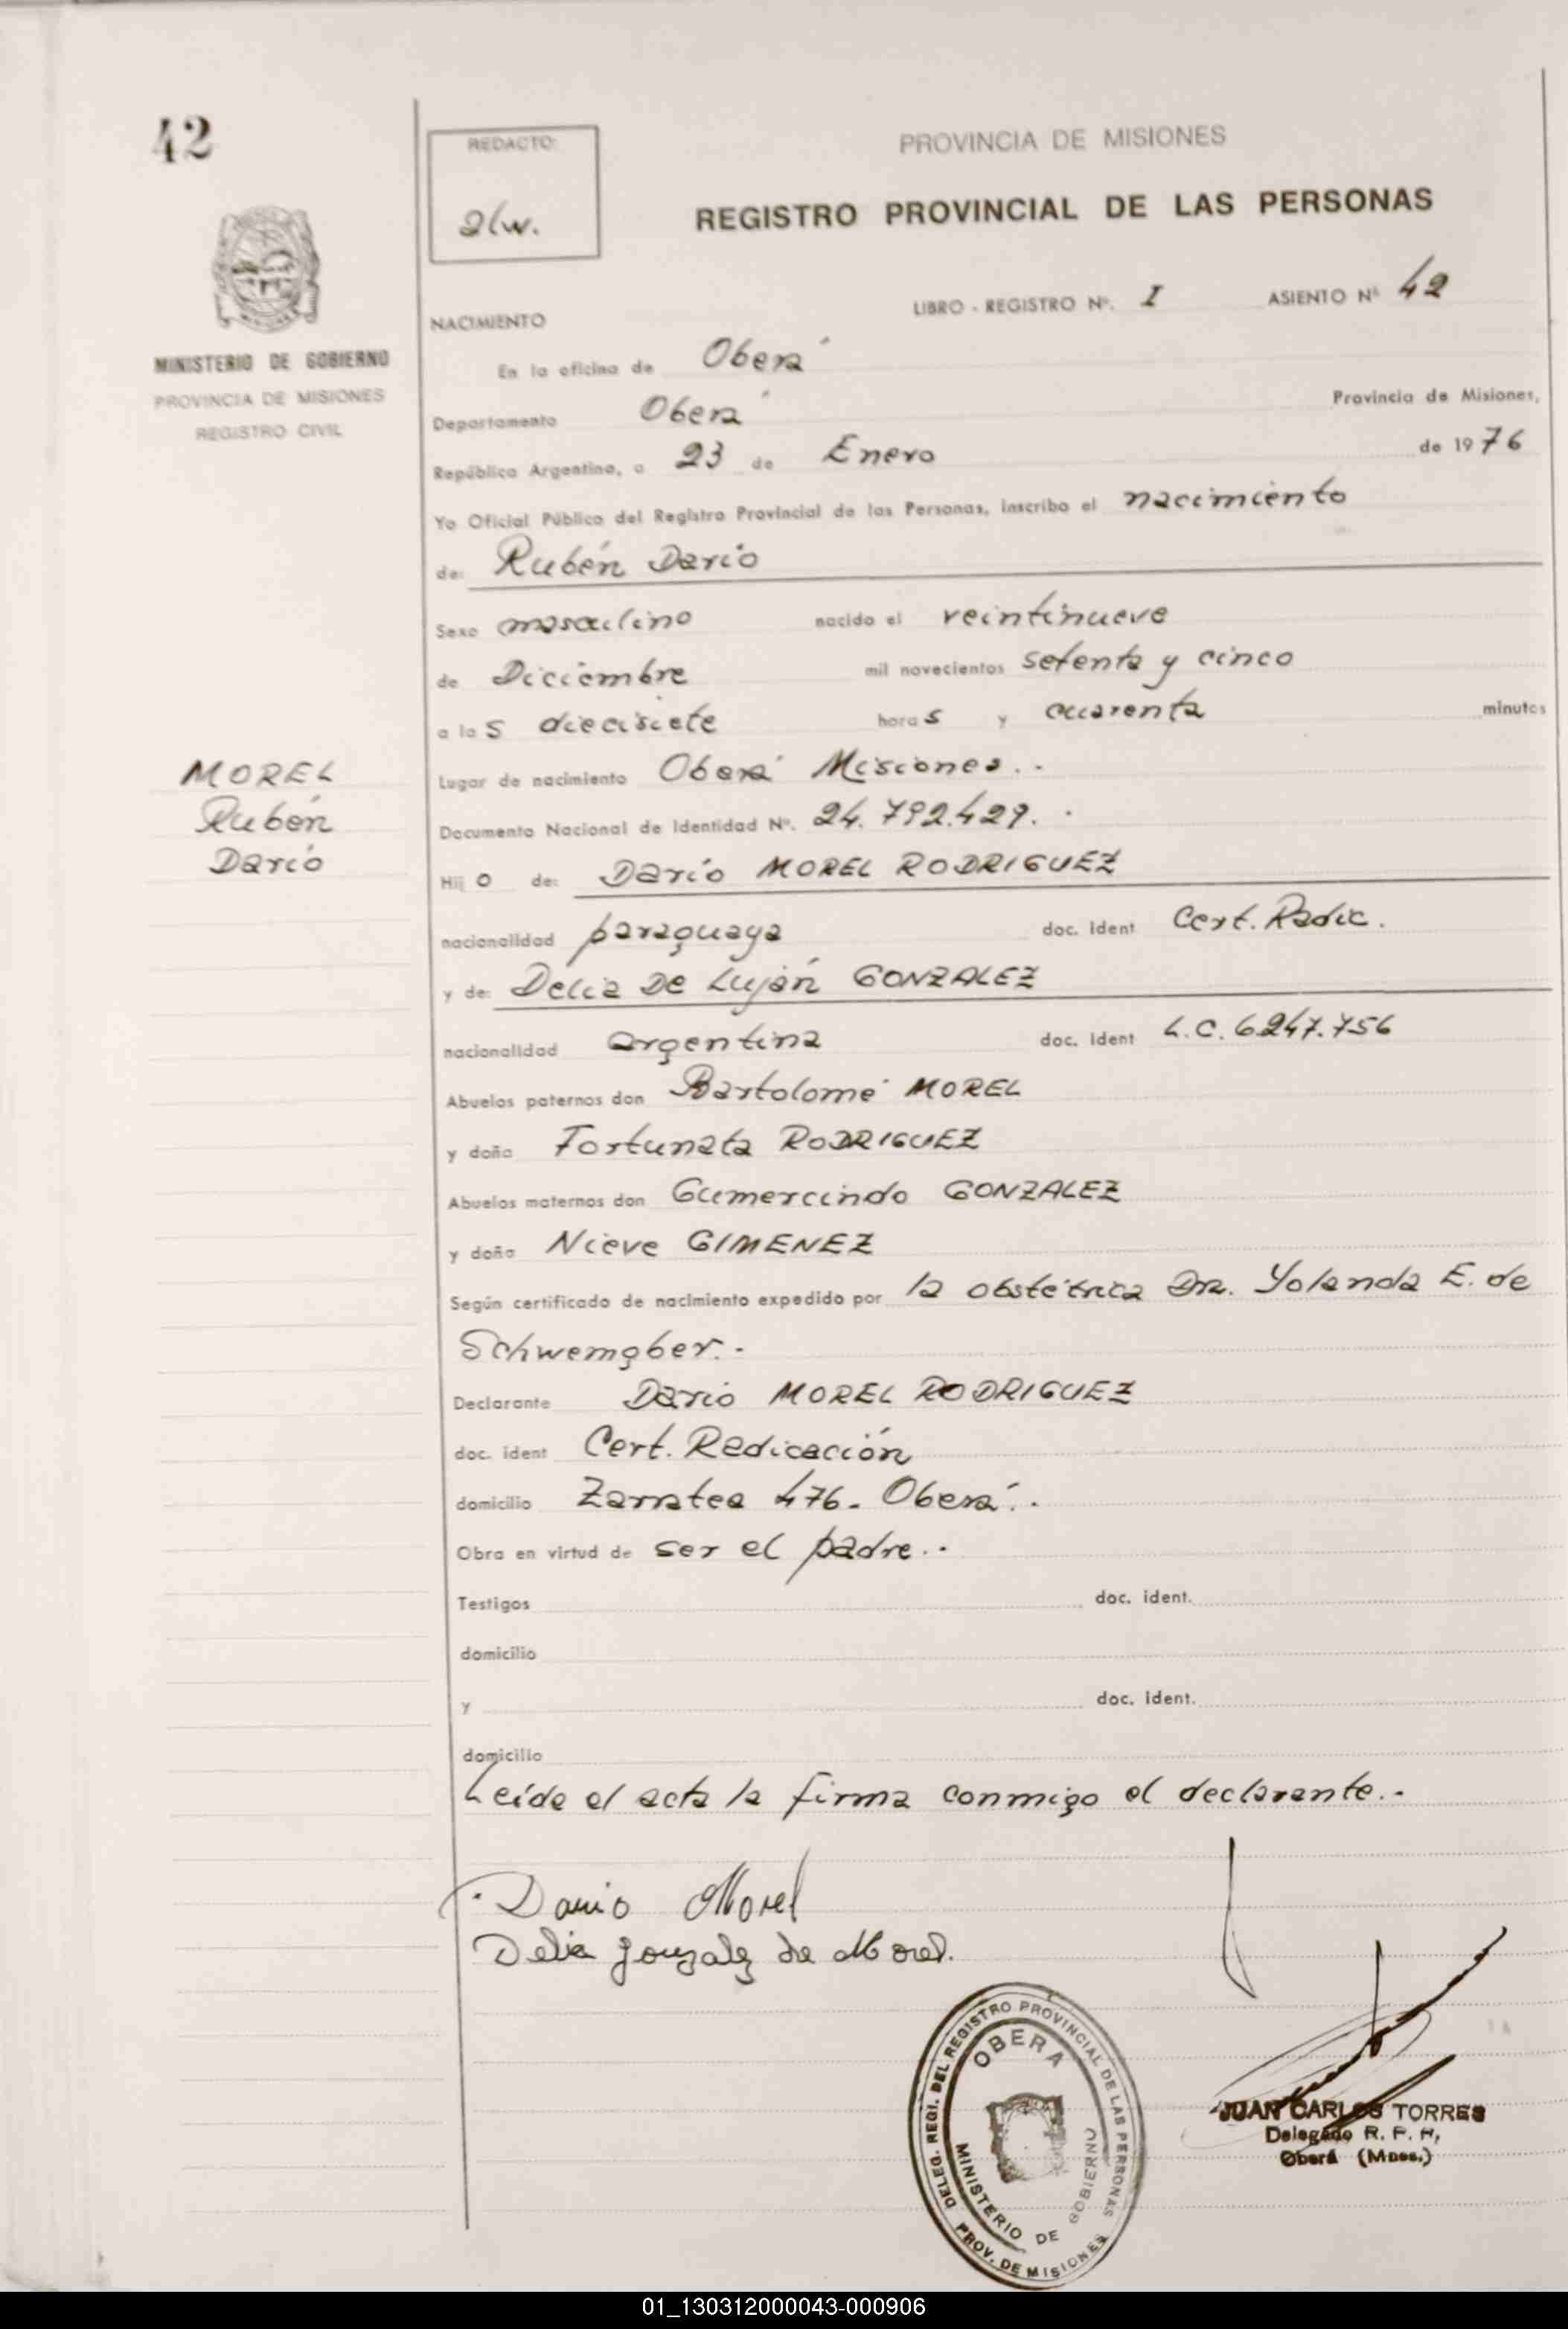 42
REDACTO:
PROVINCIA DE MISIONES
REGISTRO PROVINCIAL DE LAS PERSONAS
LIBRO - REGISTRO Nº. I ASIENTO Nº 42
NACIMIENTO
MINISTERIO DE GOBIERNO
PROVINCIA DE MISIONES
REGISTRO CIVIL
En la oficina de Oberá
Departamento Oberá Provincia de Misiones,
República Argentina, a 23 de Enero de 1976
Yo Oficial Público del Registro Provincial de las Personas, inscribo el nacimiento
de: Rubén Darío
Sexo masculino nacido el veintinueve
de Diciembre mil novecientos setenta y cinco
a las diecisiete horas y cuarenta minutos
MOREL
Rubén
Darío
Lugar de nacimiento Oberá Misiones.-
Documento Nacional de Identidad Nº. 24.792.429.-
Hijo de: Darío MOREL RODRIGUEZ
nacionalidad paraguaya doc. ident Cert. Radic.
y de: Delia De Luján GONZALEZ
nacionalidad argentina doc. ident L.C. 6247.756
Abuelos paternos don Bartolomé MOREL
y doña Fortunata RODRIGUEZ
Abuelos maternos don Gumercindo GONZALEZ
y doña Nieve GIMENEZ
Según certificado de nacimiento expedido por la obstétrica Dra. Yolanda E. de
Schwemgber.-
Declarante Darío MOREL RODRIGUEZ
doc. ident Cert. Radicación
domicilio Zarratea 476- Oberá.-
Obra en virtud de ser el padre.-
Testigos doc. ident.
domicilio
y doc. ident.
domicilio
Leída el acta la firma conmigo el declarante.-
Dario Morel
Delia Gonzalez de Morel.
DELEG. REGI. DEL REGISTRO PROVINCIAL DE LAS PERSONAS
OBERA
MINISTERIO DE GOBIERNO
PROV. DE MISIONES
JUAN CARLOS TORRES
Delegado R. P. P.
Oberá (Mnes.)
01_130312000043-000906